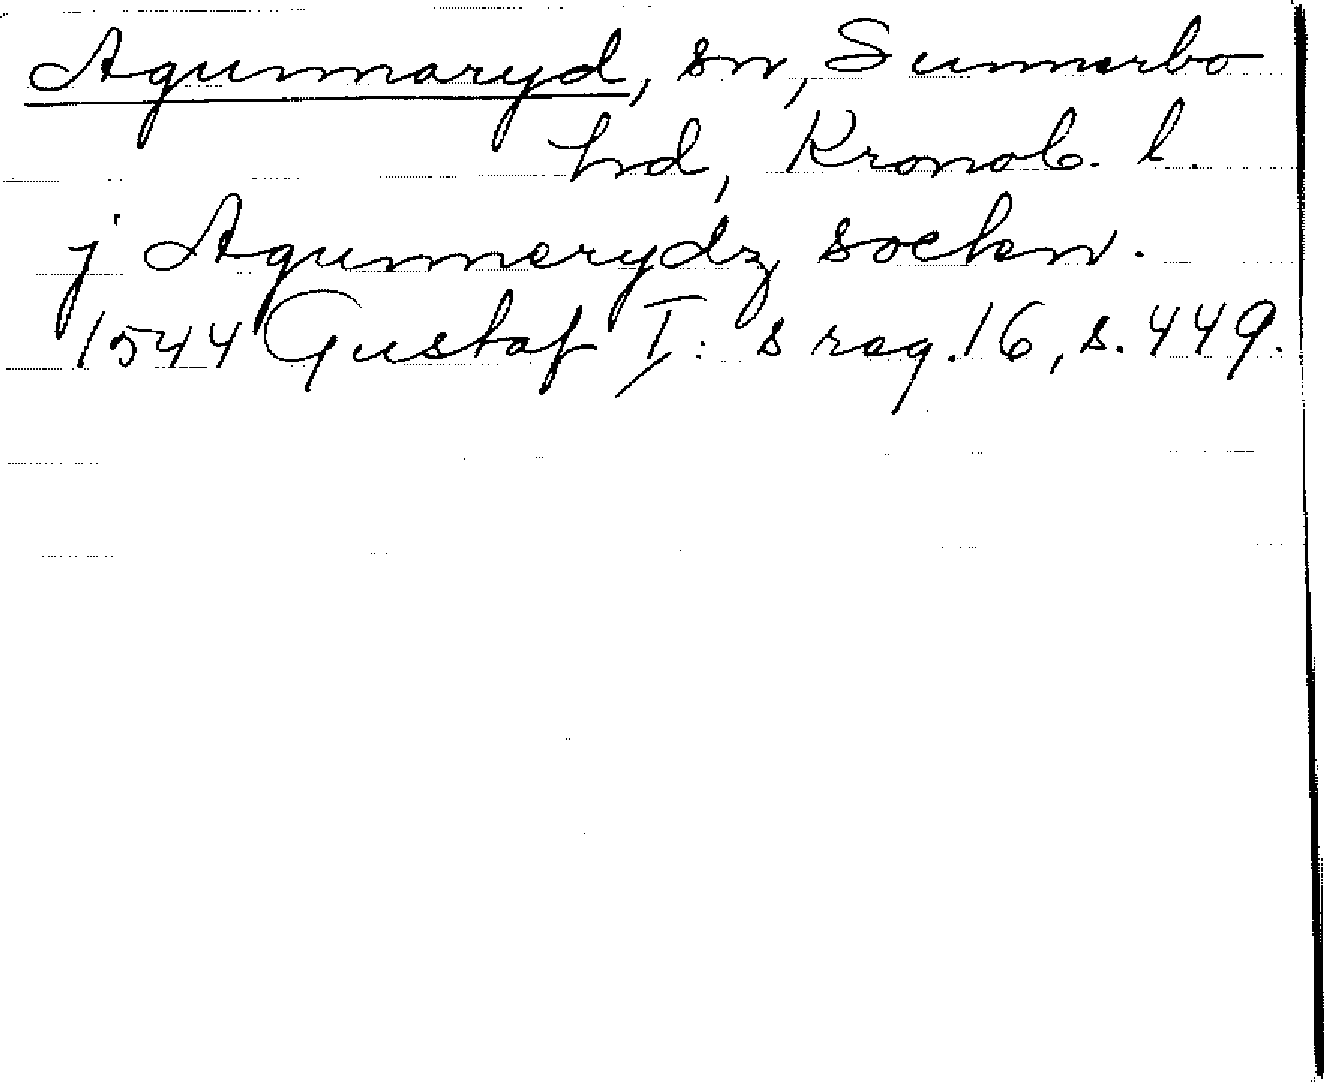 Agunnaryd, sn, Sunnerbo
hd, Kronob. l.
j Agunnerydz sockn.
1544 Gustaf I: s reg. 16, s. 449.